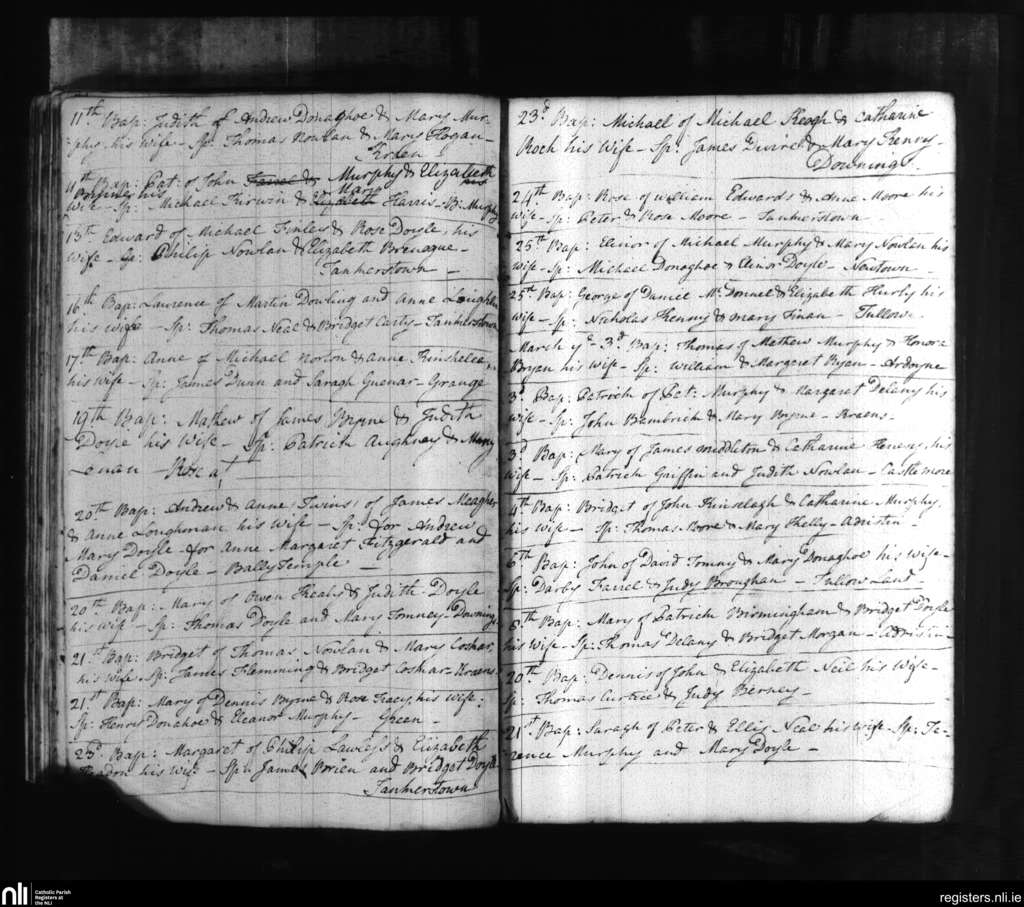 11th Bap: Judith of Andrew Donaghoe & Mary Mur-
phy his wife - Sp: Thomas Nowlan & Mary Hogan -
11th Bap: Pat: of John Murphy & Elizabeth
his Mary
Wife - Sp: Michael Kirwin & Harris - B: Murphy
13th Edward of Michael Finley & Rose Doyle, his
wife - Sp: Philip Nowlan & Elizabeth
Tankerstown -
16th Bap: Laurence of Martin Dowling and Anne Loughlin
his wife - Sp: Thomas Neal & Bridget Carty - Tankerstown
17th Bap: Anne of Michael Norton & Anne Kinshelea,
his wife - Sp: James Dunn and Saragh - Grange
19th Bap: Mathew of James Byrne & Judith
Doyle his Wife - Sp: Patrick Aughney & Mary
Lenan -
20th Bap: Andrew & Anne Twins of James Meagher
& Anne Loughman his wife - Sp: for Andrew
Mary Doyle & for Anne Margaret Fitzgerald and
Daniel Doyle - BallyTemple -
20th Bap: Mary of Owen & Judith Doyle
his wife - Sp: Thomas Doyle and Mary Tomney - Downings
21st Bap: Bridget of Thomas Nowlan & Mary Coshar,
his wife - Sp: James Flemming & Bridget Coshar -
21st Bap: Mary of Dennis Byrne & Rose Tracy, his wife:
Sp: Henry Donahoe & Eleanor Murphy - Green -
23d Bap: Margaret of Philip Lawless & Elizabeth
his wife - Sp: James Brien and Bridget Doyle
Tankerstown
23d Bap: Michael of Michael Keogh & Catharine
Roch his Wife - Sp: James & Mary Kenny -
Downing
24th Bap: Rose of william Edwards & Anne Moore his
wife - Sp: Peter & Rose Moore - Tankerstown -
25th Bap: Elinor of Michael Murphy & Mary Nowlan his
wife - Sp: Michael Donoghoe & Elinor Doyle - Newtown -
25th Bap: George of Daniel Mc Donnel & Elizabeth his
wife - Sp: Nicholas Kenny & mary Finan - Tullow -
March ye 3d Bap: Thomas of Mathew Murphy & Honora
Bryan his wife - Sp: William & Margaret Ryan - Ardoyne
3d Bap: Patrick of Pat: Murphy & Margaret Delany his
wife - Sp: John Bambrick & Mary Byrne -
3d Bap: Mary of James middleton & Catharine his
wife - Sp: Patrick Griffin and Judith Nowlan - Castlemore
4th Bap: Bridget of John Kinselagh & Catharine Murphy,
his wife - Sp: Thomas & Mary Kelly -
6th Bap: John of David Tomny & Mary Donaghoe his wife -
Sp: Darby & Judy Broughan -
8th Bap: Mary of Patrick Birmingham & Bridget Doyle
his wife - Sp: Thomas Delany & Bridget Morgan -
20th Bap: Dennis of John & Elizabeth Neil his Wife -
Sp: Thomas & Judy Berney -
21st Bap: Saragh of Peter & Elly Neal his wife - Sp: Ta-
rence Murphy and Mary Doyle -
nli
Catholic Parish
Registers at
the NLI
registers.nli.ie